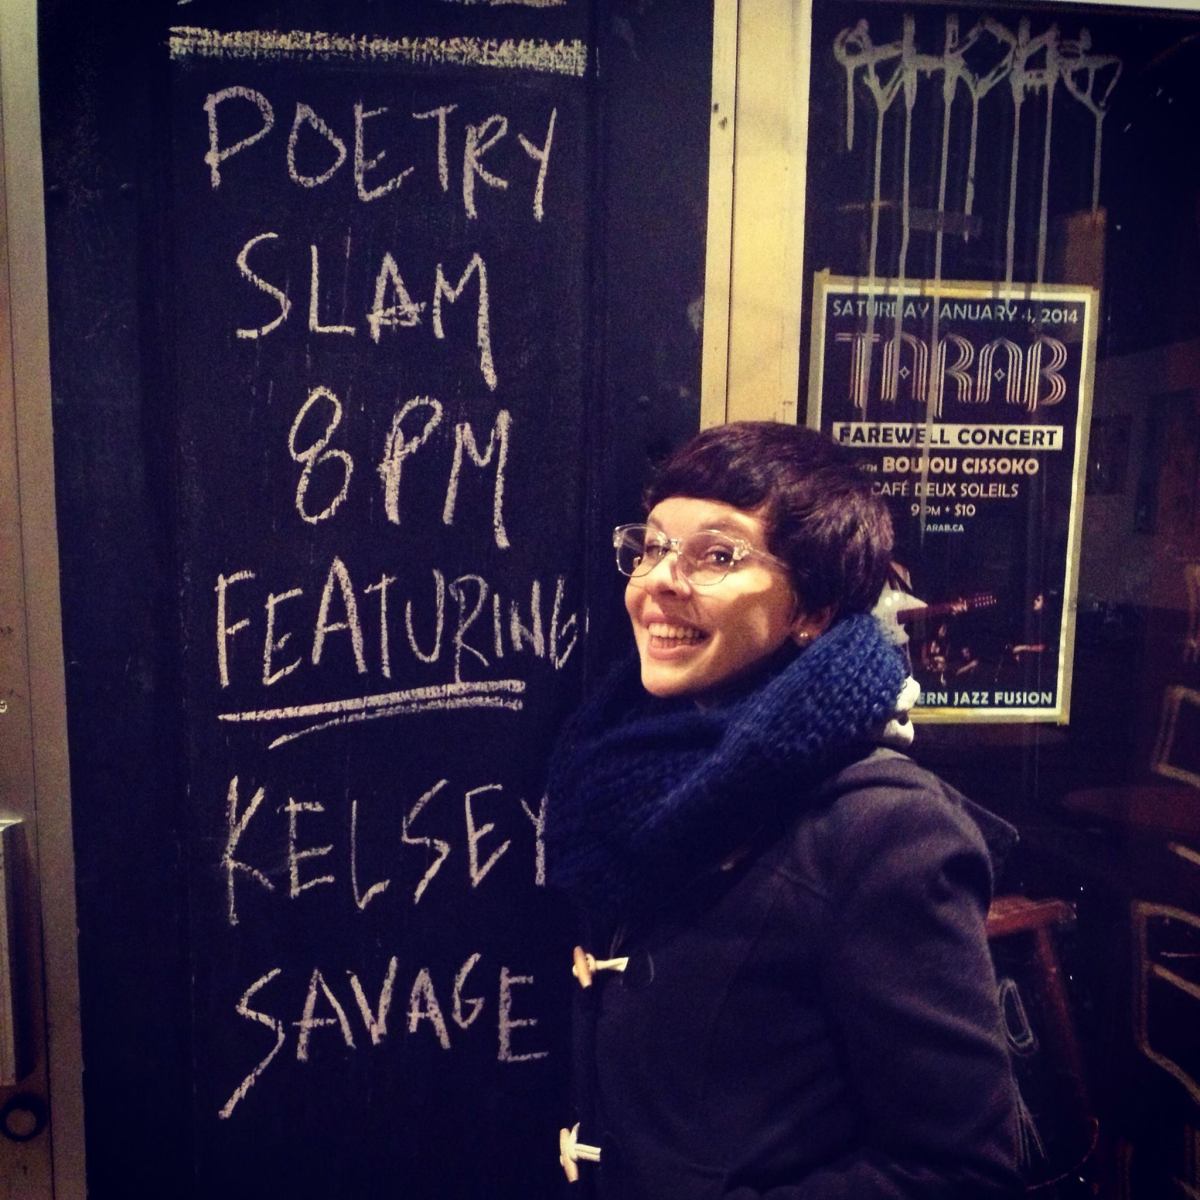 POETRY
SLAM
8PM
FEATURING
KELSEY
SAVAGE
SATURDAY JANUARY 4, 2014
TARAB
FAREWELL CONCERT
BOUJOU CISSOKO
CAFÉ DEUX SOLEILS
9PM • $10
TARAB.CA
JAZZ FUSION